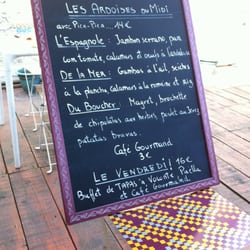 LES ARDOISES DU MIDI
avec Pica-Pica.... 14€
L'ESPAGNOLE : Jambon serrano, pan
con tomate, calamars et oeufs à l'andalouse
DE LA MER : Gambas à l'ail, seiches
à la plancha, calamars à la romaine et riz
DU BOUCHER : Magret, brochette
de chipolatas aux herbes, poulet au
patatas bravas.
Café Gourmand
3€
LE VENDREDI 16€
Buffet de TAPAS à Volonté, Paella
et Café Gourmand.